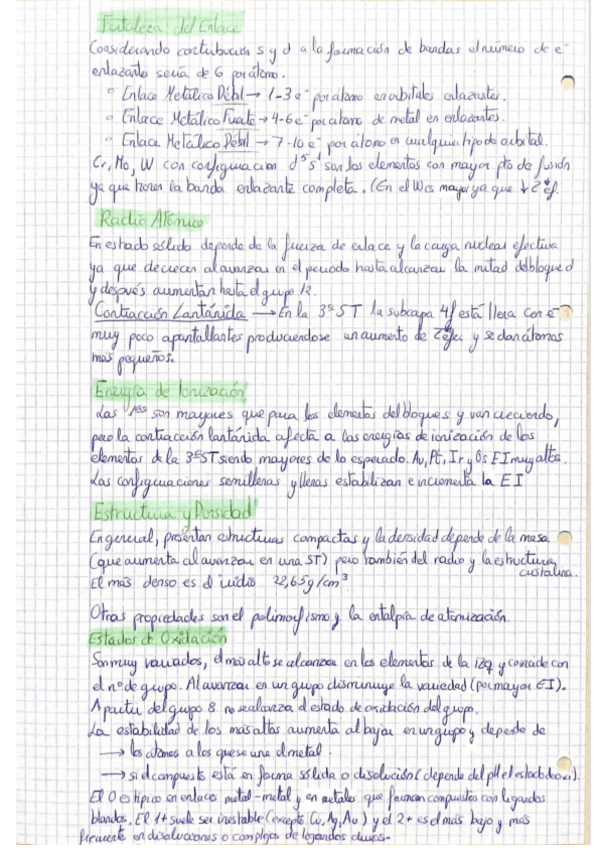 Fortaleza del Enlace
Considerando contribución s y d a la formación de bandas el número de e-
enlazantes sería de 6 por átomo.
° Enlace Metálico Débil → 1-3 e- por átomo en orbitales enlazantes.
° Enlace Metálico Fuerte → 4-6 e- por átomo de metal en enlazantes.
° Enlace Metálico Débil → 7-10 e- por átomo en cualquier tipo de orbital.
Cr, Mo, W con configuracion d5s1 son los elementos con mayor pto de fusión
ya que tienen la banda enlazante completa. (En el W es mayor ya que ↓ Z ef.
Radio Atómico
En estado sólido depende de la fuerza de enlace y la carga nuclear efectiva
ya que decrecen al avanzar en el periodo hasta alcanzar la mitad del bloque d
y después aumentan hasta el grupo 12.
Contracción Lantánida → En la 3ª ST la subcapa 4f está llena con e-
muy poco apantallantes produciendose un aumento de Zefec y se dan átomos
más pequeños.
Energía de Ionización
Las 1as son mayores que para los elementos del bloque s y van creciendo,
pero la contracción lantánida afecta a las energías de ionización de los
elementos de la 3ª ST siendo mayores de lo esperado. Au, Pt, Ir y Os EI muy altas.
Las configuraciones semillenas y llenas estabilizan e incrementa la EI
Estructura y Densidad
En general, presentan estructuras compactas y la densidad depende de la masa
(que aumenta al avanzar en una ST) pero también del radio y la estructura
cristalina.
El más denso es el iridio 22,65 g/cm3
Otras propiedades son el polimorfismo y la entalpía de atomización.
Estados de Oxidación
Son muy variados, el más alto se alcanza en los elementos de la izq y coincide con
el nº de grupo. Al avanzar en un grupo disminuye la variedad (por mayor EI).
A partir del grupo 8 no se alcanza el estado de oxidación del grupo.
La estabilidad de los más altos aumenta al bajar en un grupo y depende de
→ los átomos a los que se une el metal.
→ si el compuesto está en forma sólida o disolución (depende del pH el estab doxi).
El 0 es típico en enlaces metal-metal y en metales que forman compuestos con ligandos
blandos. El 1+ suele ser inestable (excepto Cu, Ag, Au) y el 2+ es el más bajo y más
frecuente en disoluciones o complejos de ligandos duros.